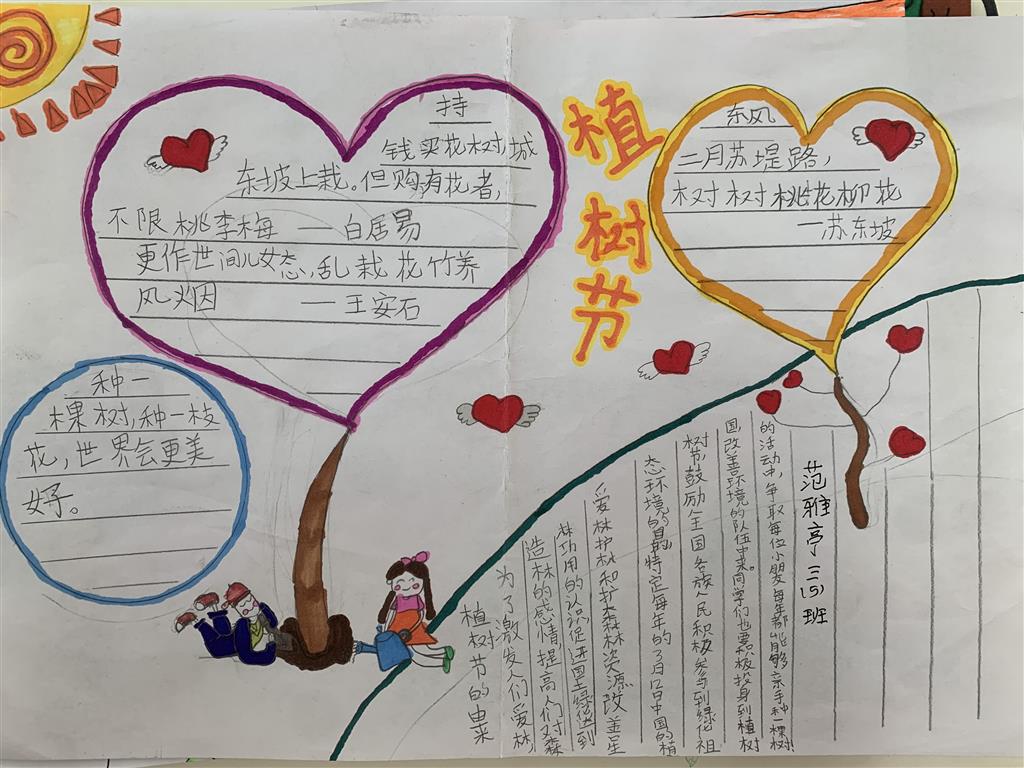 持
钱买花树城
东坡上栽。但购有花者，
不限桃李梅 —白居易
更作世间儿女态，乱栽花竹养
风烟 —王安石
植树节
东风
二月苏堤路，
树树桃花柳花
—苏东坡
种一
棵树，种一枝
花，世界会更美
好。
植树节的由来
为了激发人们爱林
造林的感情提高人们对森
林功用的认识促进国土绿化达到
爱林护林和扩森林资源改善星
态环境的目的，特定每年的3月12日中国的植
树节，鼓励全国各族人民积极参与到绿化祖
国改善环境的队伍中来。同学们也要积极投身到植树
的活动中，争取每位小朋友每年都能够亲手种一棵树！
范雅亭 三（5）班